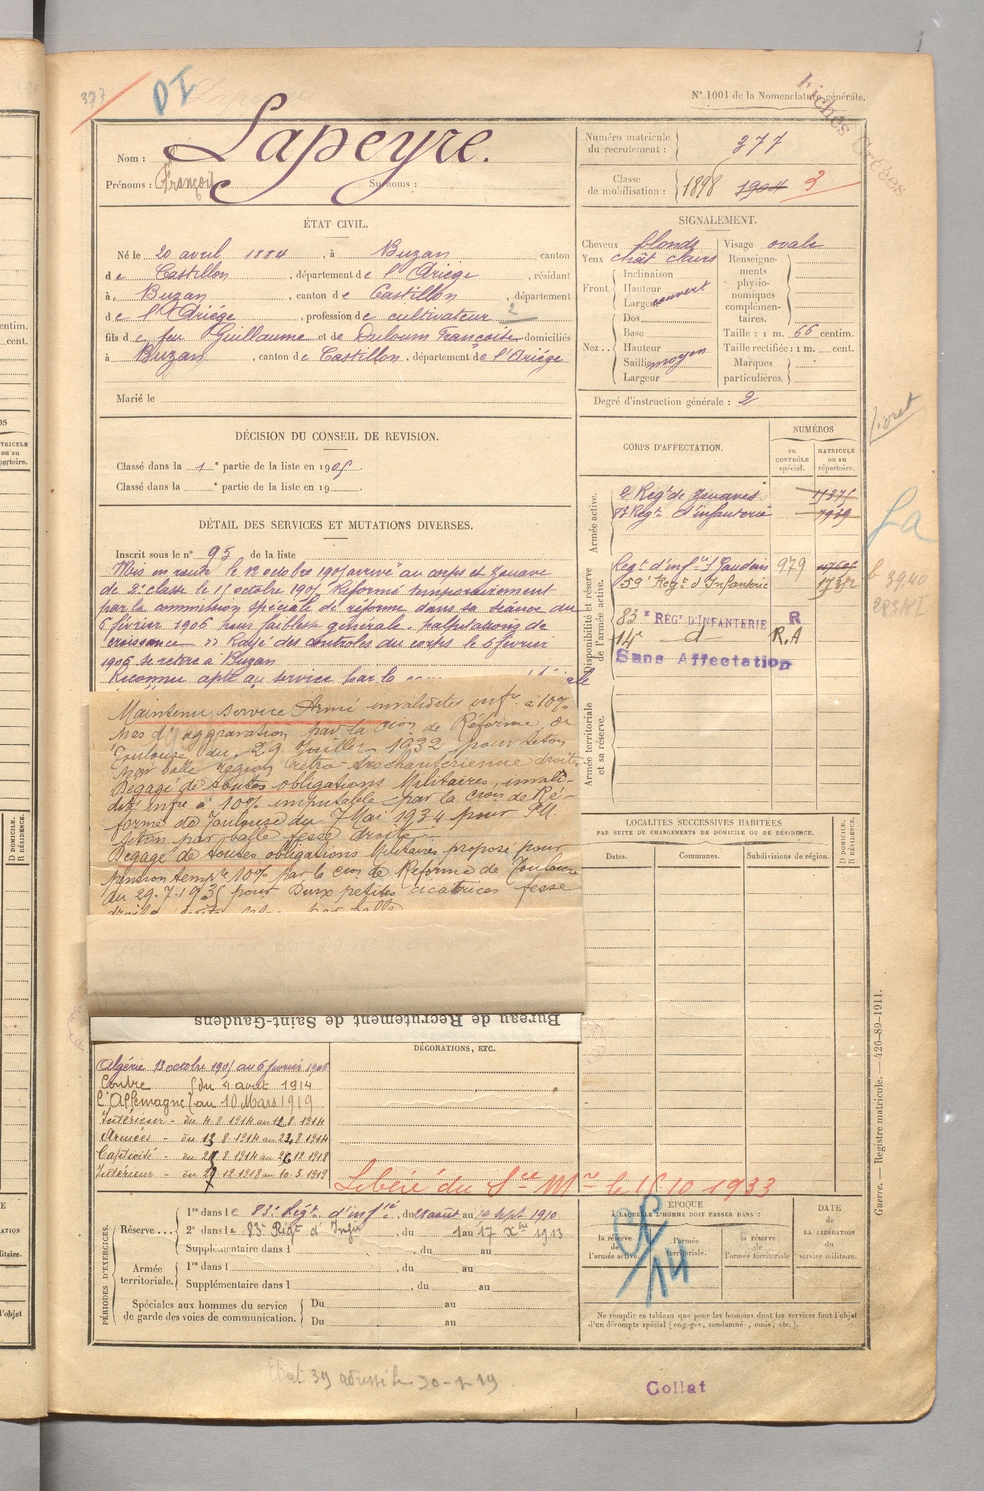 377
DI
N° 1001 de la Nomenclature générale.
Fiches Créées
Nom : Lapeyre.
Prénoms : François Surnoms :
Numéro matricule du recrutement : 377
Classe de mobilisation : 1898 1904 3
ÉTAT CIVIL.
Né le 20 avril 1884, à Buzan canton
de Castillon, département de l'Ariège, résidant
à Buzan, canton de Castillon, département
de l'Ariége, profession de cultivateur 2
fils de feu Guillaume et de Duloum Françoise domiciliés
à Buzan, canton de Castillon, département de l'Ariége
Marié le
SIGNALEMENT.
Cheveux blonds
Yeux chât clairs
Front Inclinaison
Hauteur
Largeur couvert
Nez Dos
Base
Hauteur
Saillie moyen
Largeur
Visage ovale
Renseignements physionomiques complémentaires.
Taille : 1 m. 66 centim.
Taille rectifiée : 1 m. cent.
Marques particulières.
Degré d'instruction générale : 2
livret
DÉCISION DU CONSEIL DE REVISION.
Classé dans la 1e partie de la liste en 1905.
Classé dans la e partie de la liste en 19
CORPS D'AFFECTATION.
NUMÉROS
AU CONTRÔLE spécial.
MATRICULE ou au répertoire.
Armée active.
2e Regt de Zouaves
Regt d'infanterie
Disponibilité et réserve de l'armée active.
Regt d'infie St Gaudens 979
59e Regt d'Infanterie
83e REGt D'INFANTERIE R
14e d R.A
Sans Affectation
Armée territoriale et sa réserve.
La
DÉTAIL DES SERVICES ET MUTATIONS DIVERSES.
Inscrit sous le n° 95 de la liste
Mis en route le 12 octobre 1905 arrivé au corps et Zouave
de 2e classe le 15 octobre 1905 Réformé temporairement
par la commission spéciale de réforme dans sa séance du
6 février 1906 pour faiblesse générale, palpitations de
croissance Rayé des contrôles du corps le 6 février
1906 se retire à Buzan
Reconnu apte au service par la
Maintenu Service Armé invalidité infre à 10%
pas d'aggravation par la Cion de Réforme de
Toulouse du 29 Juillet 1932 pour seton
par balle région rétro-trochantérienne droite
Dégagé de toutes obligations Militaires, invalidité
infre à 10% imputable par la cion de Réforme
de Toulouse du 7 Mai 1934 pour
seton par balle fesse droite
Dégagé de toutes obligations Militaires proposé pour
pension tempre 10% par la cion de Réforme de Toulouse
du 29.7.1935 pour Deux petites cicatrices fesse
Bureau de Recrutement de Saint-Gaudens
LOCALITÉS SUCCESSIVES HABITÉES
PAR SUITE DE CHANGEMENTS DE DOMICILE OU DE RÉSIDENCE.
Dates.
Communes.
Subdivisions de région.
D DOMICILE.
R RÉSIDENCE.
Algérie 13 octobre 1905 au 6 février 1906
Contre du 4 août 1914
l'Allemagne au 10 Mars 1919
Intérieur - du 4 8 1914 au 12 8 1914
Armées - du 13 8 1914 au 22 8 1914
Captivité - du 8 1914 au 26 12 1918
Intérieur - du 12 1918 au 10 3 1919
DÉCORATIONS, ETC.
Libéré du Sce Mre le 15 10 1933
PÉRIODES D'EXERCICES.
Réserve 1re dans le 83e Régt d'infie, du août au sept 1910
2e dans le 83e Régt d'Infie, du 1 au 17 Xbre 1913
Supplémentaire dans l , du au
Armée territoriale. 1re dans l , du au
Supplémentaire dans l , du au
Spéciales aux hommes du service de garde des voies de communication. Du au
Du au
ÉPOQUE
À LAQUELLE L'HOMME DOIT PASSER DANS :
la réserve de l'armée active.
l'armée territoriale.
la réserve de l'armée territoriale
DATE
de
LA LIBÉRATION
du
service militaire.
14
Ne remplir ce tableau que pour les hommes dont les services font l'objet
d'un décompte spécial (engagés, condamnés, omis, etc.).
Guerre. — Registre matricule. — 426-89-1911.
Etat 39 adressé le
Collat